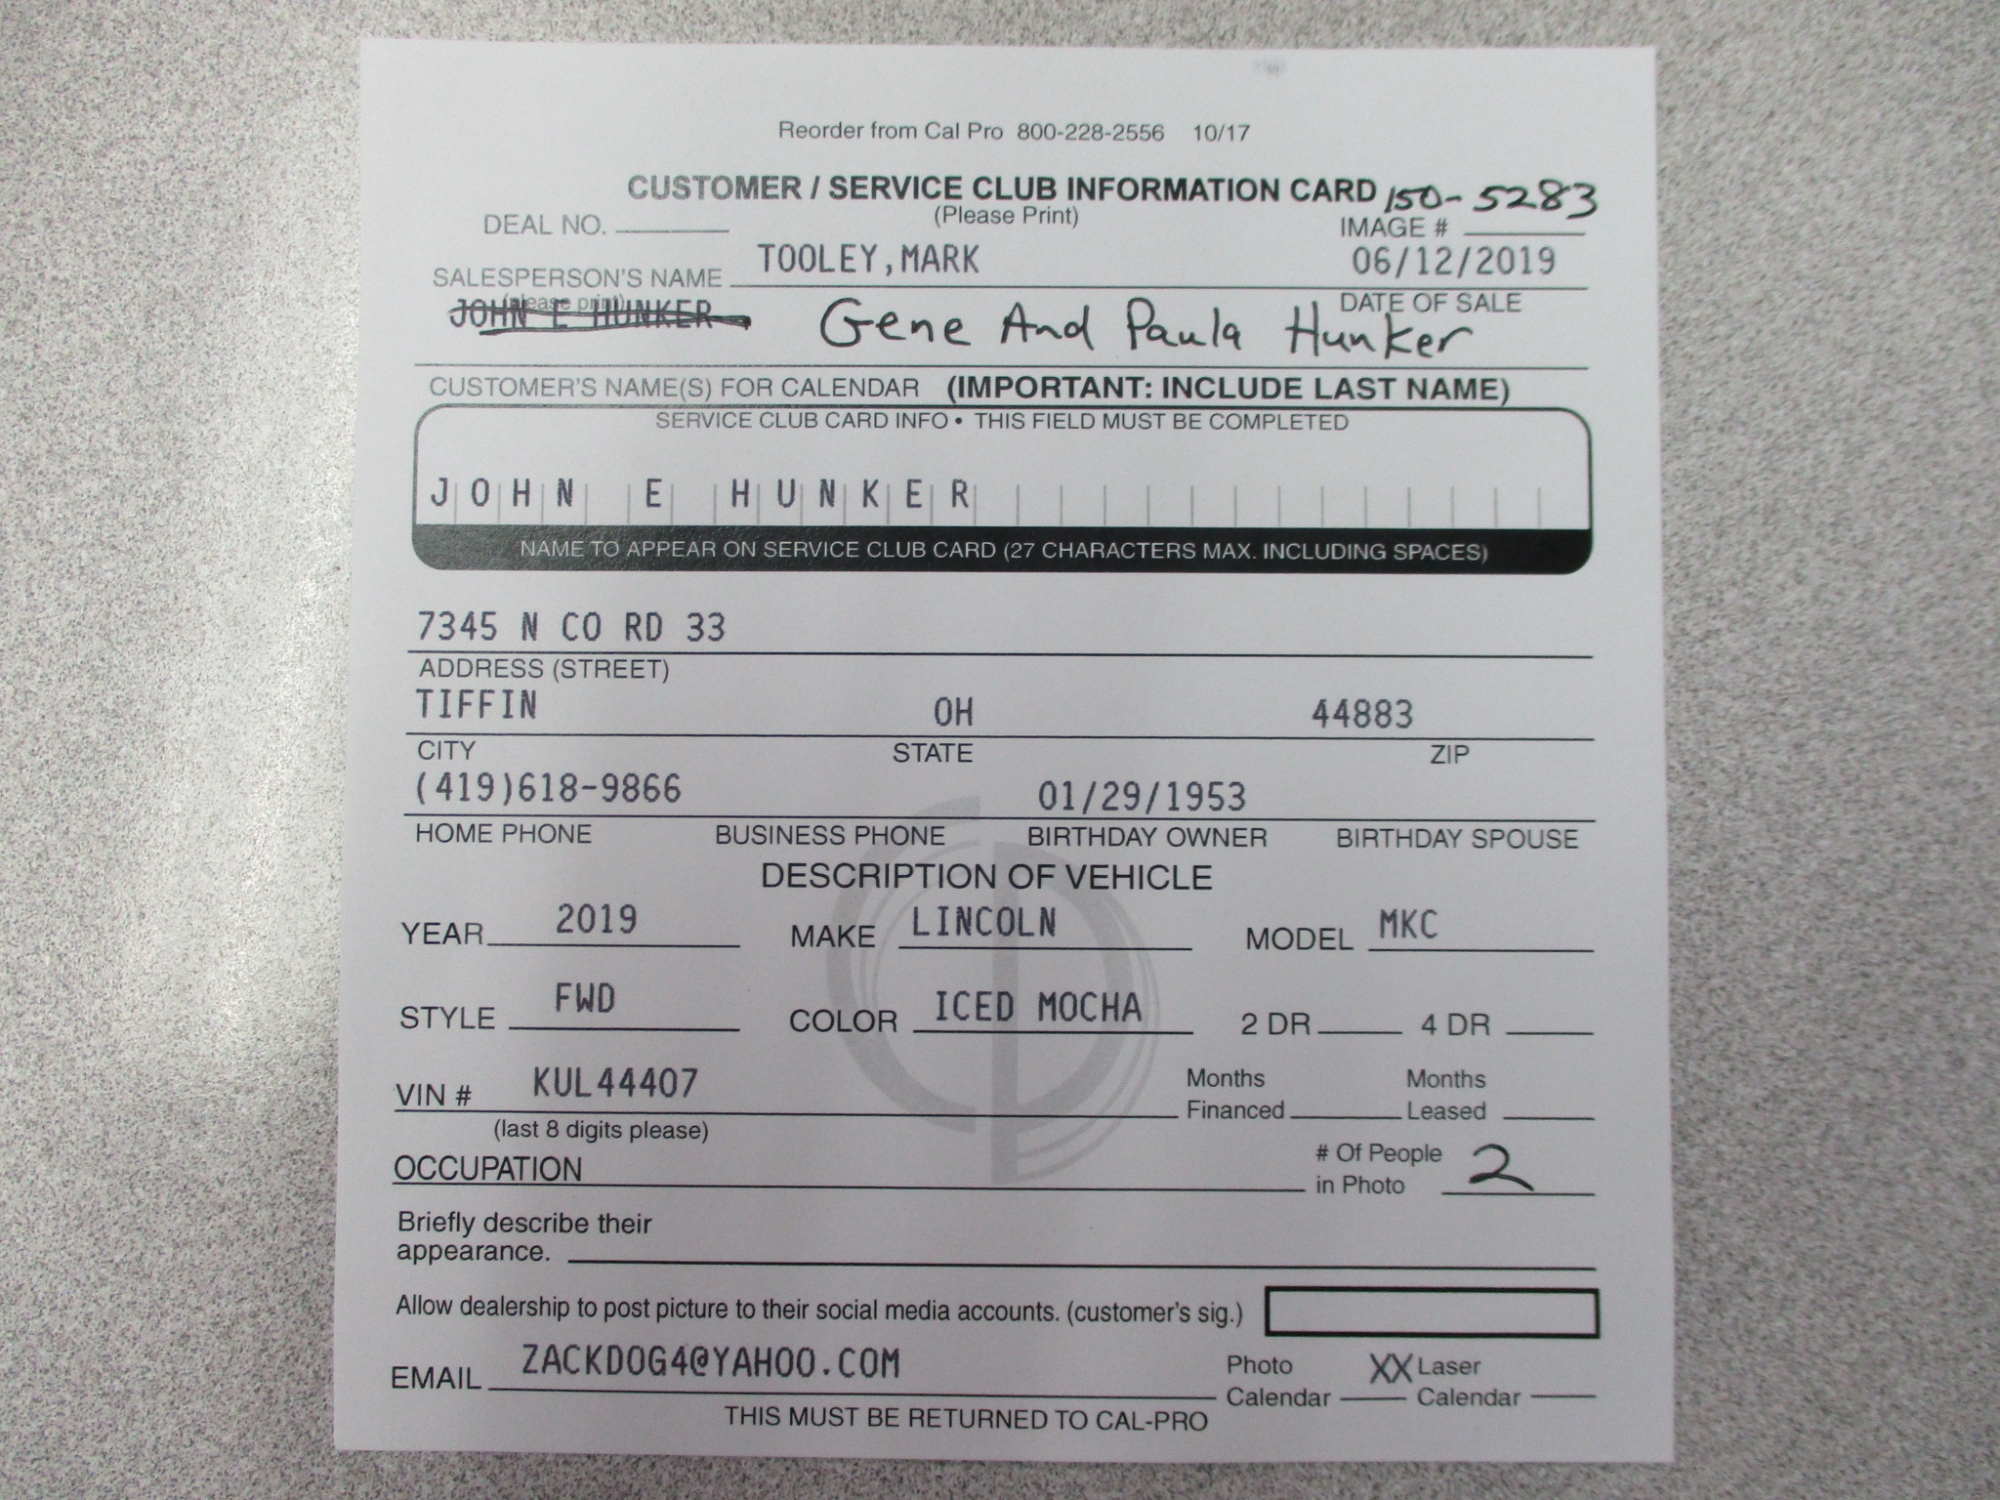 Reorder from Cal Pro 800-228-2556 10/17
CUSTOMER / SERVICE CLUB INFORMATION CARD 150-5283
DEAL NO. (Please Print) IMAGE #
TOOLEY,MARK 06/12/2019
SALESPERSON'S NAME (please print) DATE OF SALE
JOHN E HUNKER Gene And Paula Hunker
CUSTOMER'S NAME(S) FOR CALENDAR (IMPORTANT: INCLUDE LAST NAME)
SERVICE CLUB CARD INFO • THIS FIELD MUST BE COMPLETED
JOHN E HUNKER
NAME TO APPEAR ON SERVICE CLUB CARD (27 CHARACTERS MAX. INCLUDING SPACES)
7345 N CO RD 33
ADDRESS (STREET)
TIFFIN OH 44883
CITY STATE ZIP
(419)618-9866 01/29/1953
HOME PHONE BUSINESS PHONE BIRTHDAY OWNER BIRTHDAY SPOUSE
DESCRIPTION OF VEHICLE
YEAR 2019 MAKE LINCOLN MODEL MKC
STYLE FWD COLOR ICED MOCHA 2 DR 4 DR
VIN # KUL44407 Months Financed Months Leased
(last 8 digits please)
OCCUPATION # Of People in Photo 2
Briefly describe their
appearance.
Allow dealership to post picture to their social media accounts. (customer's sig.)
EMAIL ZACKDOG4@YAHOO.COM Photo Calendar XX Laser Calendar
THIS MUST BE RETURNED TO CAL-PRO